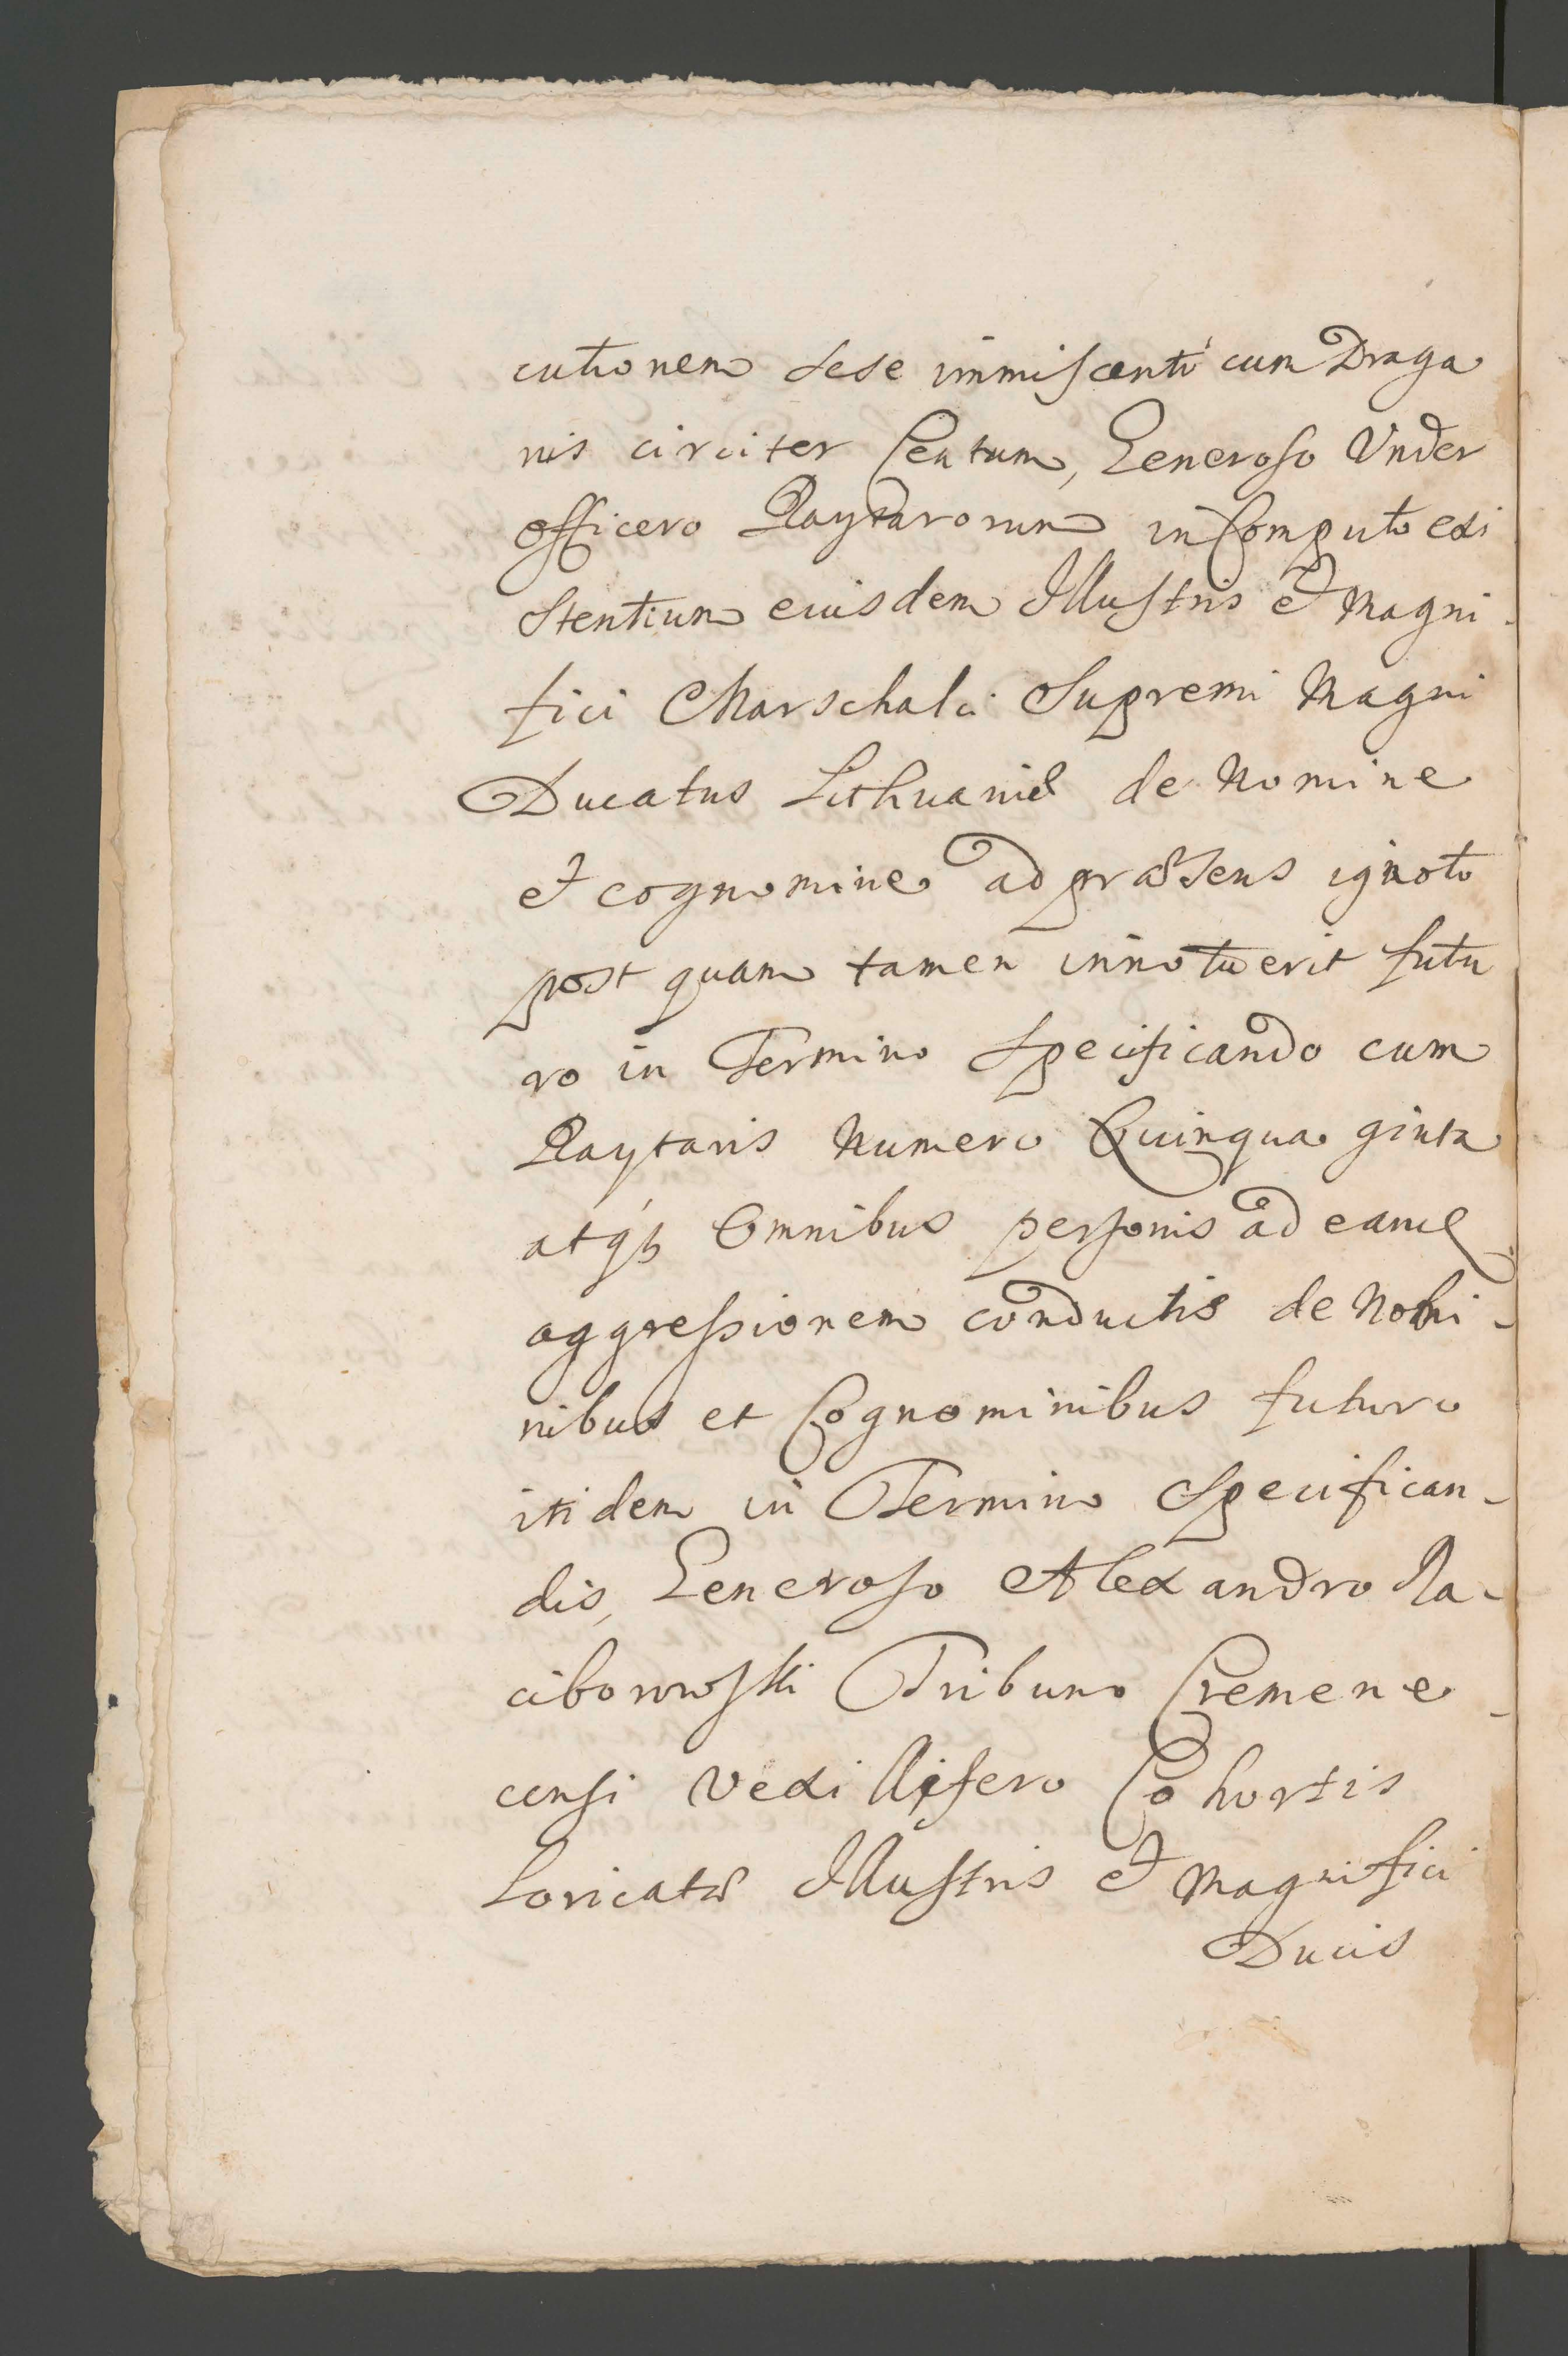 cutionem sese immiscenti cum Draga
nis circiter Centum, Generoso Under
officero Raytarorum in Computo exi
stentium eiusdem Illustris et Magni-
fici Marschalci Supremi Magni
Ducatus Lithuaniæ de Nomine
et cognomine ad præsens ignoto
post quam tamen innotuerit futu
ro in Termino Specificando cum
Raytaris Numero Quinqua ginta
atqз Omnibus personis ad eam
aggressionem conductis de Nomi-
nibus et Cognominibus futuro
itidem in Termino Specifican-
dis, Generoso Alexandro Ra-
ciborowski Tribuno Cremene-
censi Vexillifero Cohortis
Loricatæ Illustris et Magnifici
Ducis